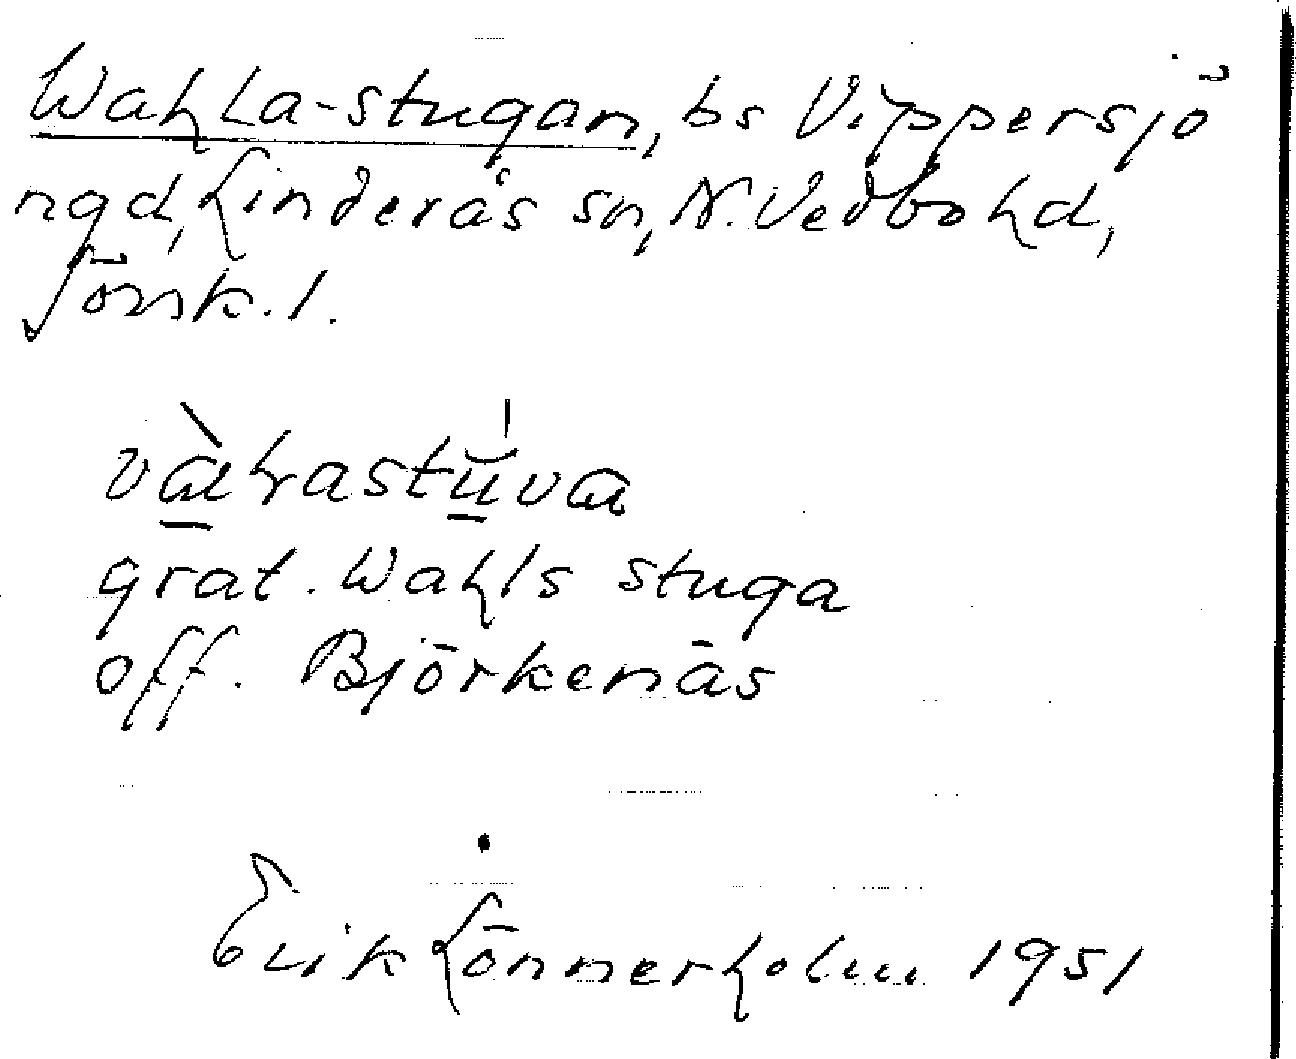 Wahla-stugan, bs Vippersjö
ngd, Linderås sn, N. Vedbo hd,
Jönk. l.
grat. Wahls stuga
off. Björkenäs
Erik Lönnerholm 1951